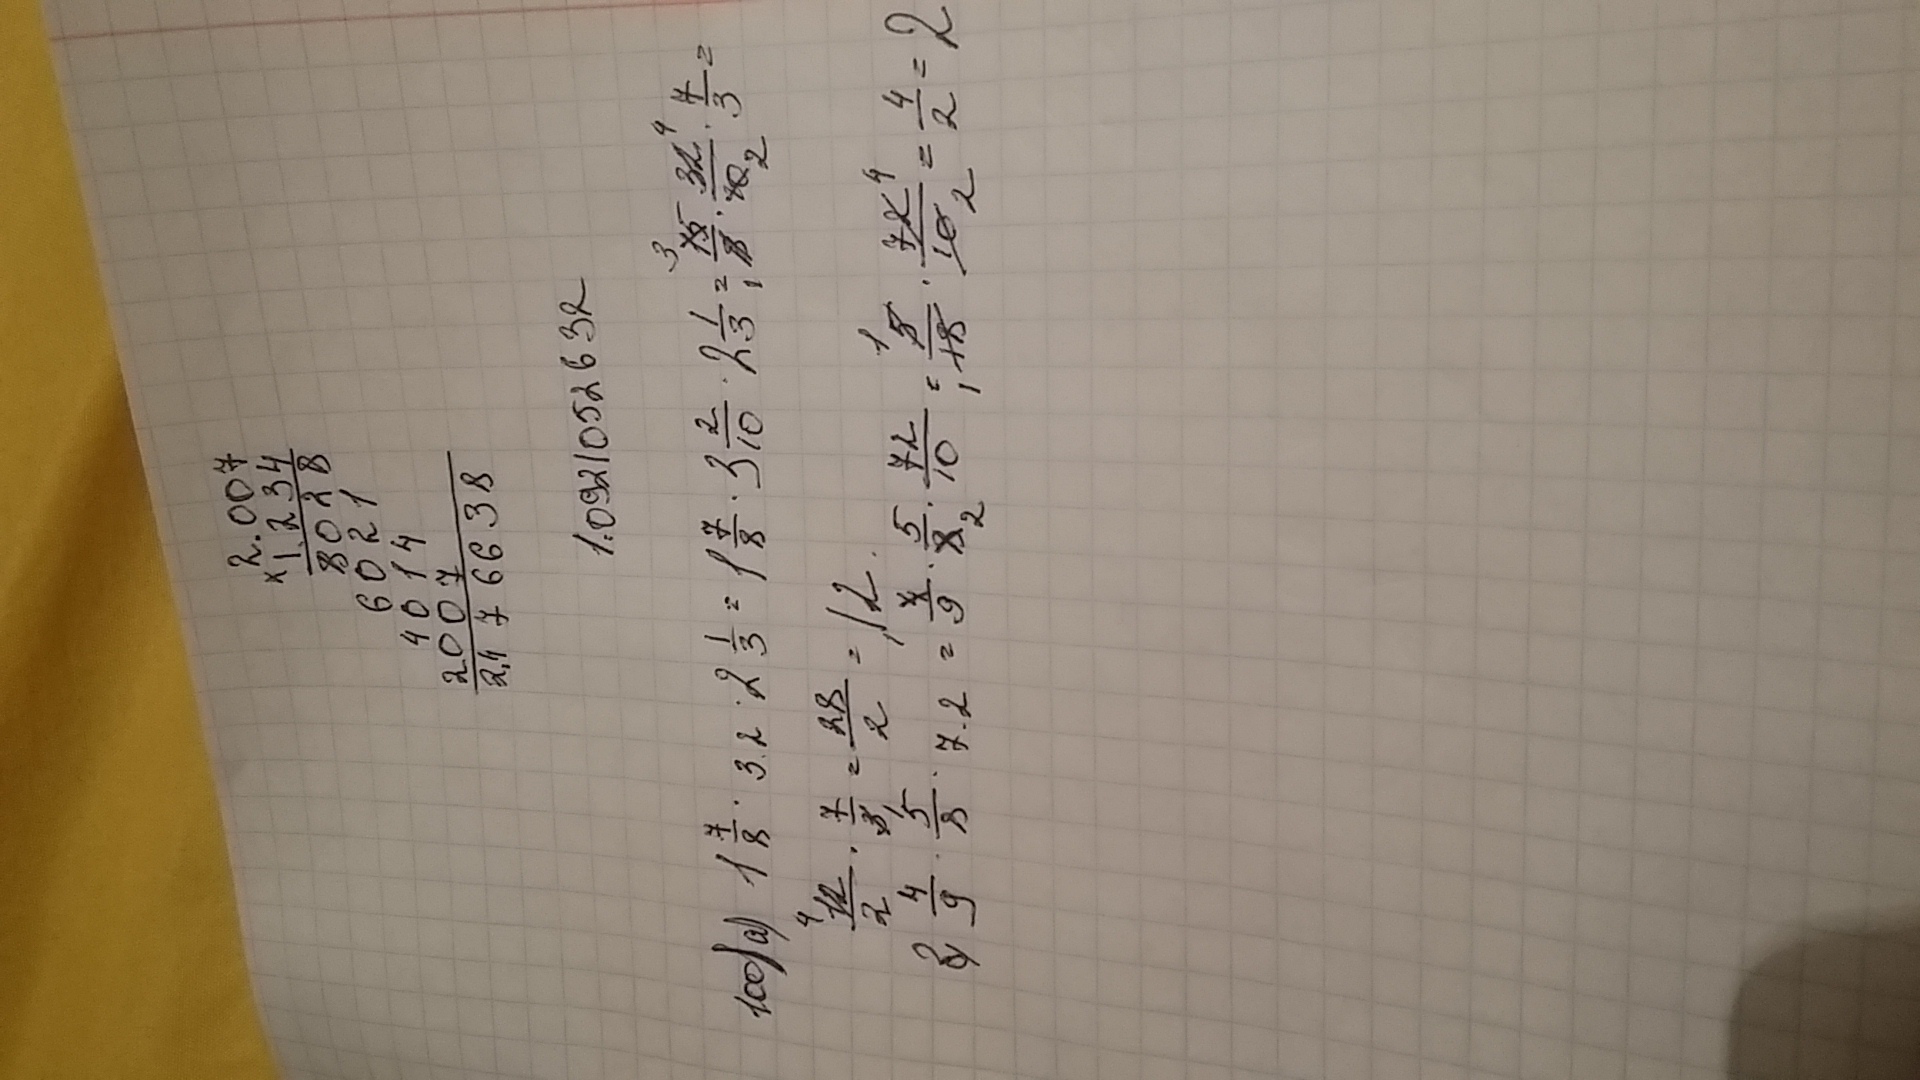 2.007
× 1.234
8028
6021
4014
2007
2.476638
1.0921052632
100/a) 1 7/8 · 3.2 · 2 1/3 = 1 7/8 · 3 2/10 · 2 1/3 = 15/8 · 32/10 · 7/3 =
12/2 · 7/3 = 28/2 = 12.
4/9 · 5/8 · 7.2 = 4/9 · 5/8 · 72/10 = 5/18 · 72/10 = 4/2 = 2